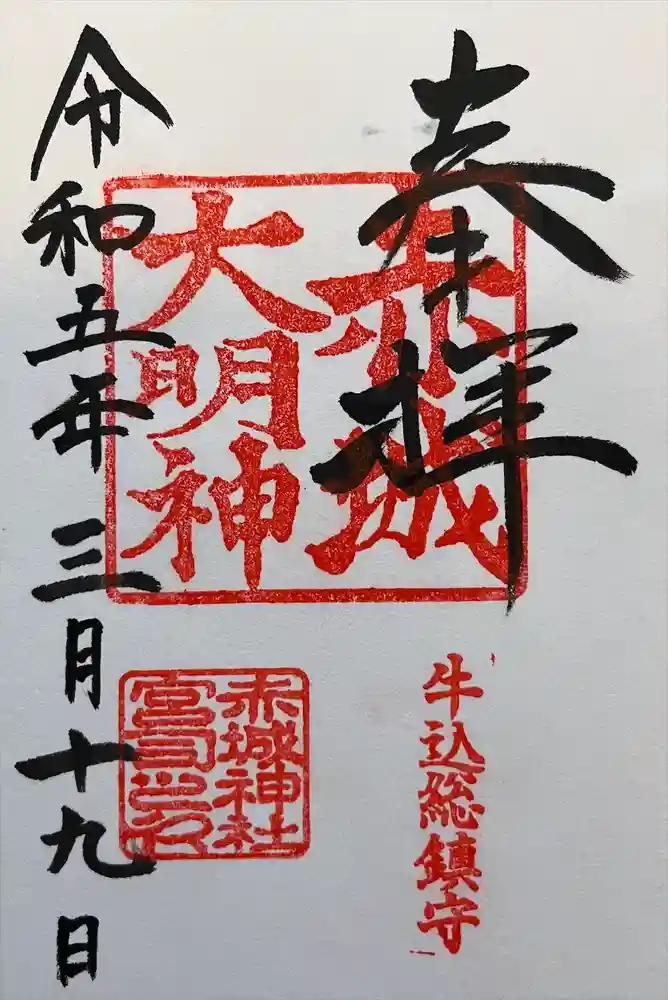 奉拝
赤城
大明神
牛込総鎮守
赤城神社
宮司之印
令和五年三月十九日